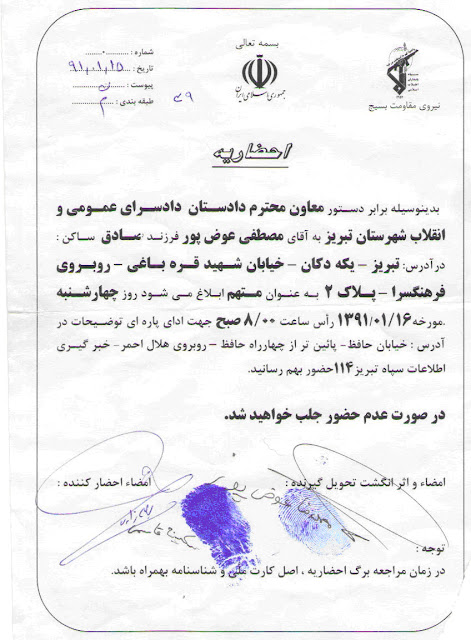 بسمه تعالی
جمهوری اسلامی ایران
نیروی مقاومت بسیج
شماره :
تاریخ : ۹۱،۰۱،۱۵
پیوست :
طبقه بندی : م
احضاریه
بدینوسیله برابر دستور معاون محترم دادستان دادسرای عمومی و
انقلاب شهرستان تبریز به آقای مصطفی عوض پور فرزند صادق ساکن :
درآدرس: تبریز – یکه دکان – خیابان شهید قره باغی – روبروی
فرهنگسرا – پلاک ۲ به عنوان متهم ابلاغ می شود روز چهارشنبه
مورخه ۱۳۹۱/۰۱/۱۶ رأس ساعت ۸/۰۰ صبح جهت ادای پاره ای توضیحات در
آدرس : خیابان حافظ- پائین تر از چهارراه حافظ – روبروی هلال احمر- خبر گیری
اطلاعات سپاه تبریز ۱۱۴ حضور بهم رسانید.
در صورت عدم حضور جلب خواهید شد.
امضاء و اثر انگشت تحویل گیرنده :
امضاء احضار کننده :
عوض پور
توجه :
در زمان مراجعه برگ احضاریه ، اصل کارت ملی و شناسنامه بهمراه باشد.